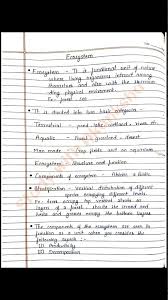 Ecosystem
• Ecosystem - It is functional unit of nature
where living organisms interact among
themselves and also with the surroun-
ding physical environment.
Ex: forest
• It is divided into two basic categories -
Terrestrial - pond, lake, wetland, river etc.
Aquatic - Forest, grassland, desert
Man made - Crop fields and an aquarium
Ecosystem - Structure and function
• Components of ecosystem - Abiotic & Biotic
• Stratification - Vertical distribution of different
species occupying different levels.
Ex: trees occupy top vertical strata or
layer of a forest, shrubs the second and
herbs and grasses occupy the bottom layers
• The components of the ecosystem are seen to
function as a unit when you consider the
following aspects :
(i) Productivity
(ii) Decomposition